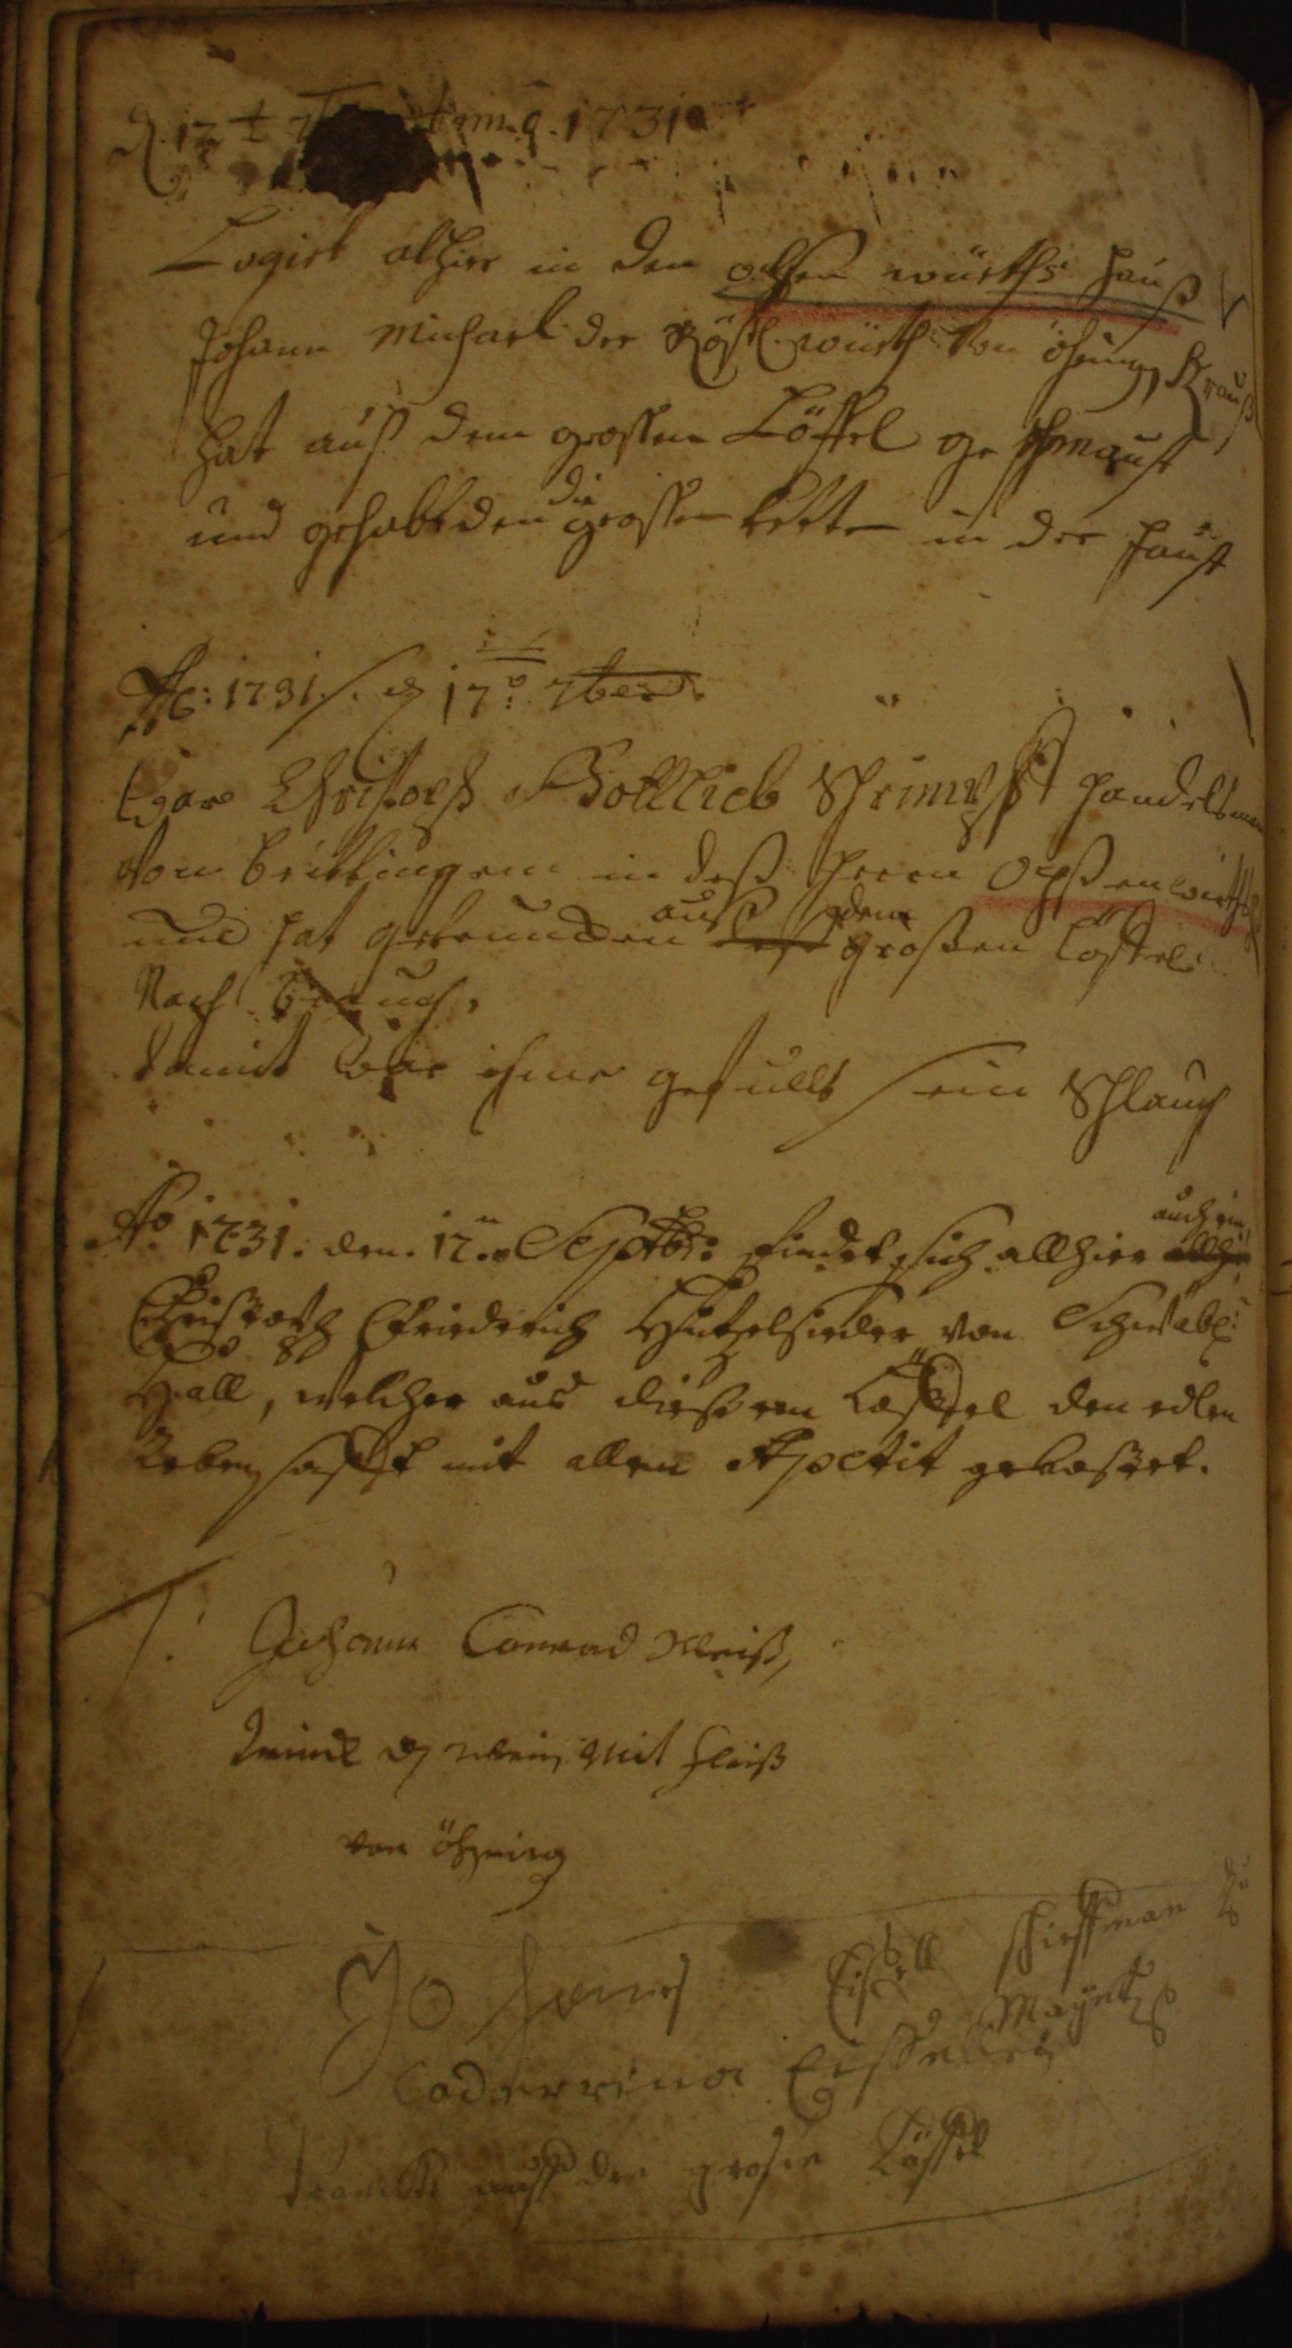 d. 17t 1731
Logirt alhier in den ochsen würths hauß
Johann Michael der Rößl. würth von öhring, Krauß
hat auß dem grossen Löffel geschmaust
und gehabt den die grossen kette in der faust
Ao: 1731. d 17o. 7ber.
War Christoph Gottlieb Schrimpff handelsman
von in deß herrn Ochßenwirths
und hat getruncken auß dem großen Löffel
Nach Brauch,
damit war ihme gefüllt sein Schlauch
Ao 1731. den. 17.n Septbr: findet sich allhier auch ein
Christoph Friederich von Schwäb:
Hall, welcher aus dießem Löffel den edlen
Rebensafft mit allem Apetit gekostet.
Johann Conrad Weiß,
Trinckt d wein mit fleiß
von öhring
Johanes schiffman zu
Caderrina
aus den großen Löffel